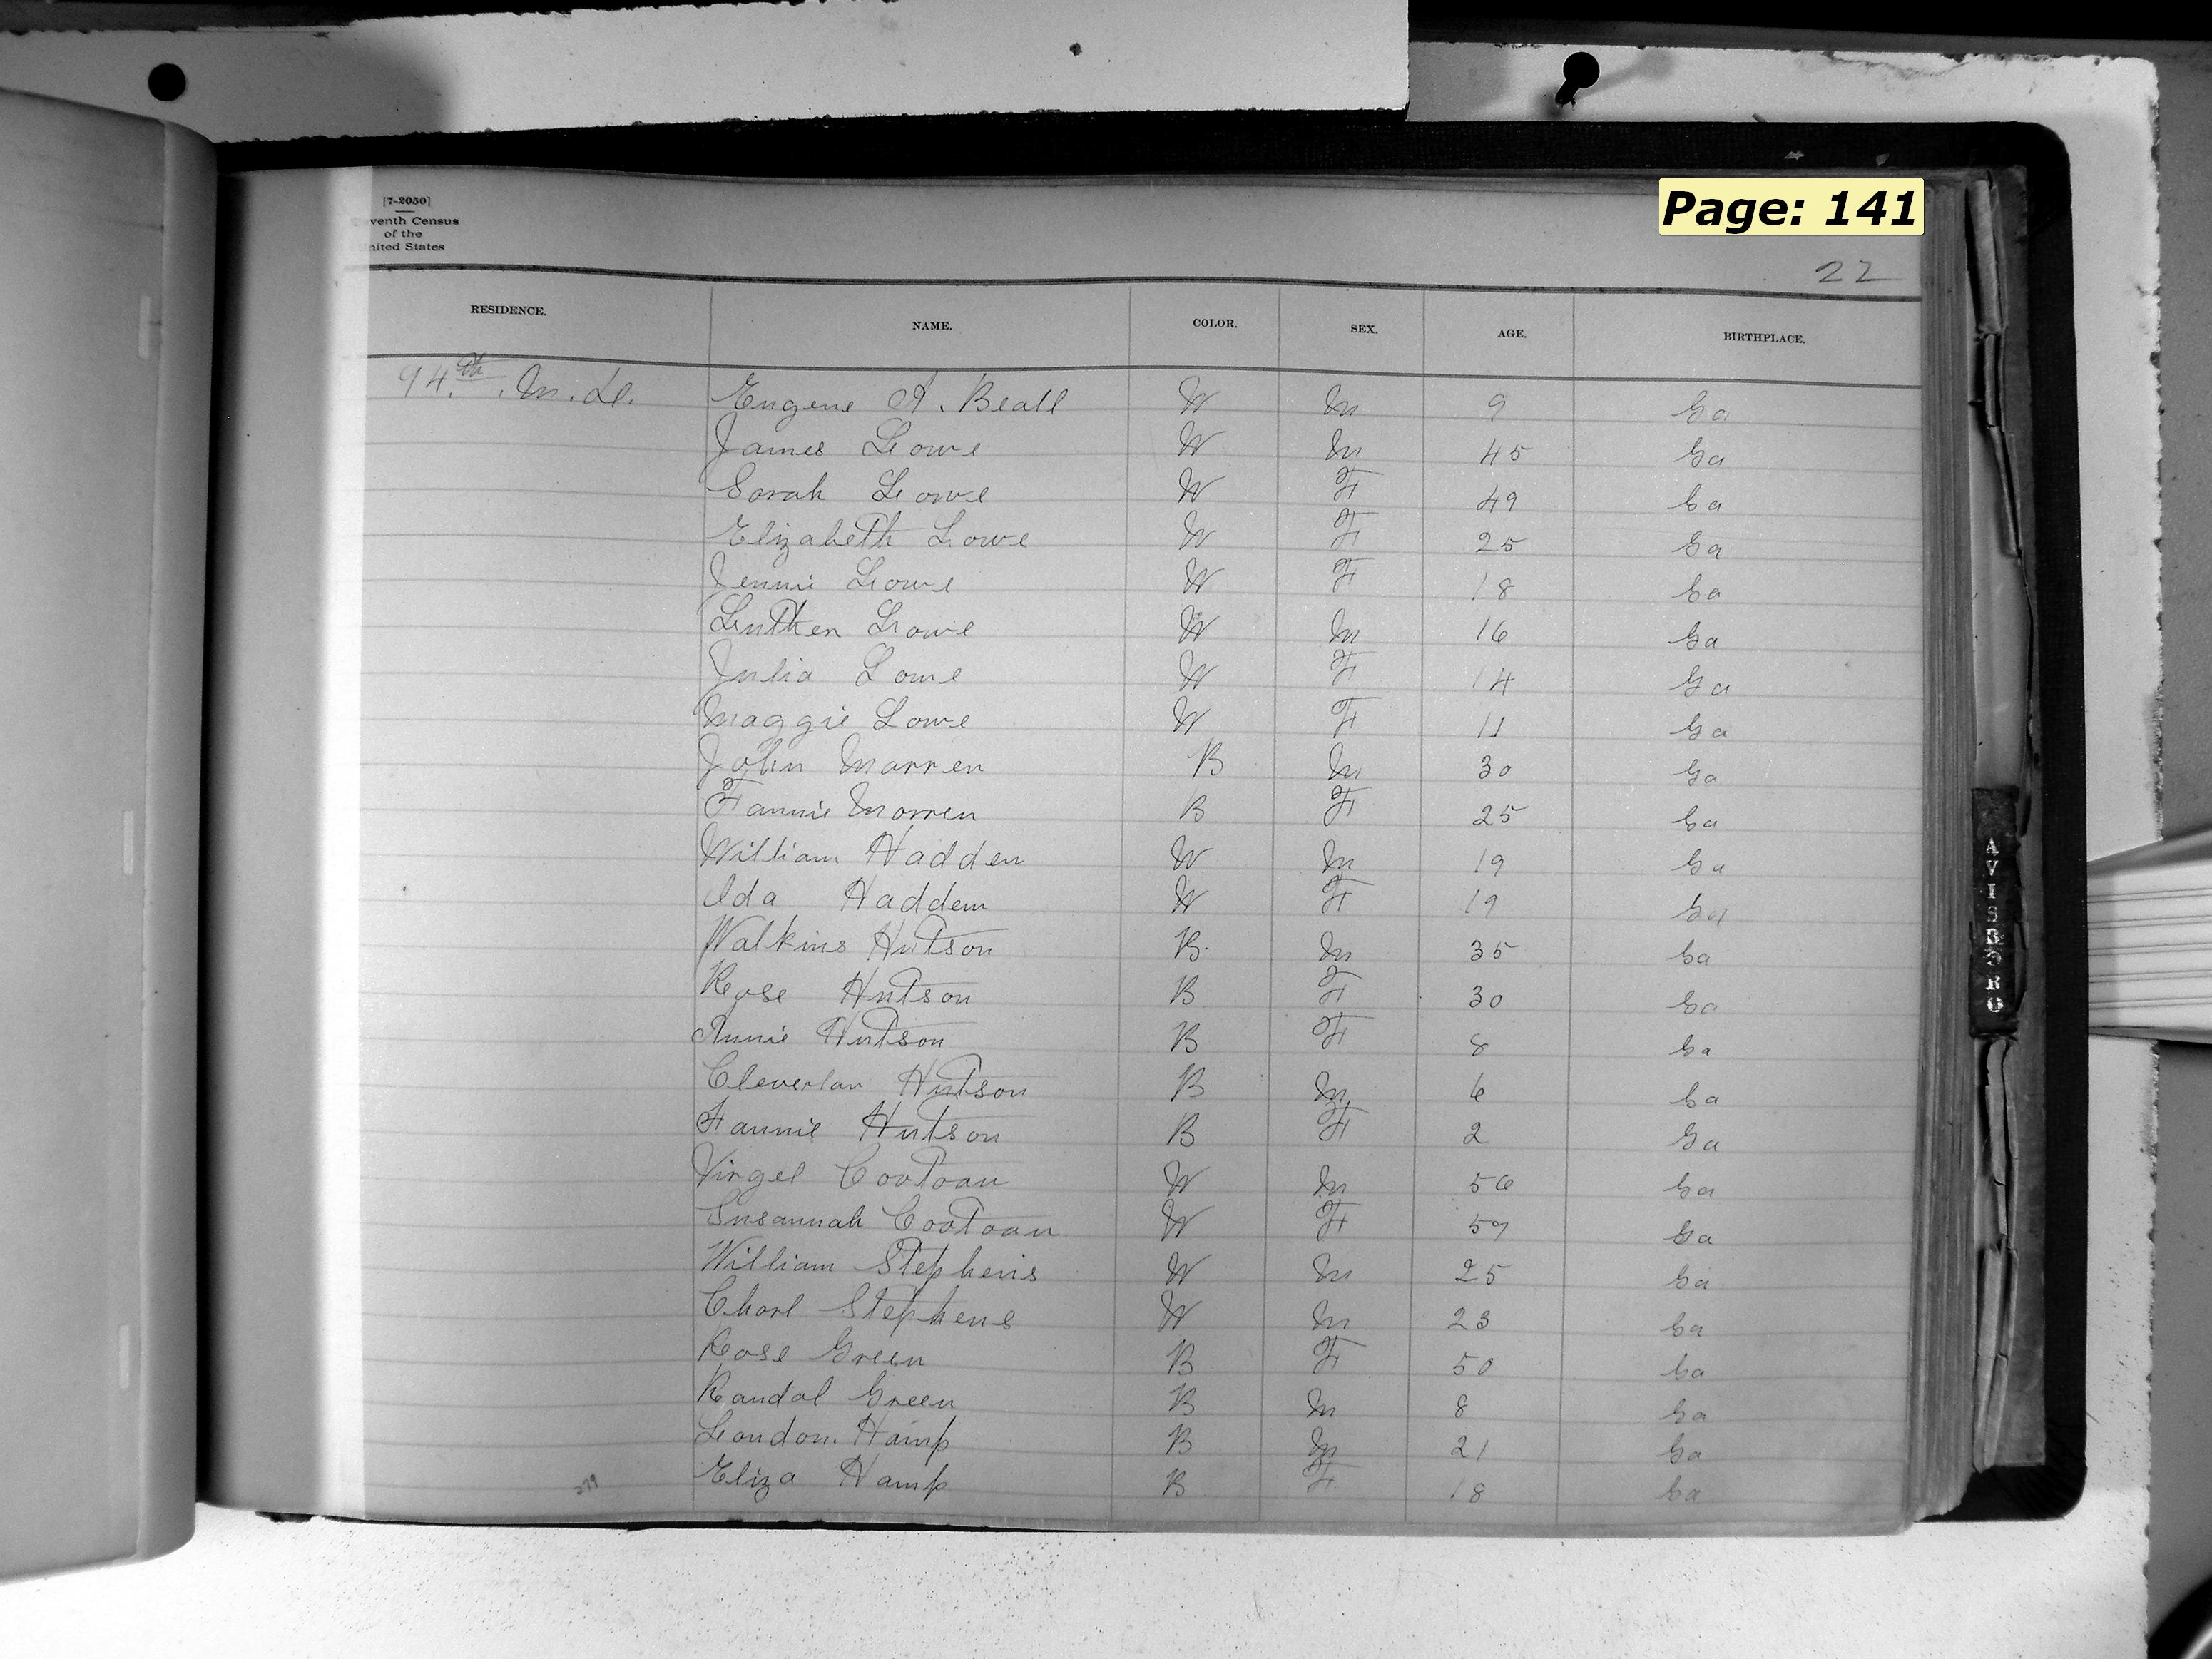 Page: 141
[7-2050]
venth Census
of the
nited States
22
RESIDENCE. NAME. COLOR. SEX. AGE. BIRTHPLACE.
94th. M. D. Eugene A. Beall W M 9 Ga
James Lowe W M 45 Ga
Sarah Lowe W F 49 Ga
Elizabeth Lowe W F 25 Ga
Jennie Lowe W F 18 Ga
Luther Lowe W M 16 Ga
Julia Lowe W F 14 Ga
Maggie Lowe W F 11 Ga
John Marren B M 30 Ga
Fannie Morren B F 25 Ga
William Hadden W M 19 Ga
Ida Hadden W F 19 Ga
Walkins Hutson B. M 35 Ga
Rose Hutson B F 30 Ga
Annie Hutson B F 8 Ga
Cleverlan Hutson B M 6 Ga
Fannie Hutson B F 2 Ga
Virgel W M 56 Ga
Susannah W F 57 Ga
William Stephens W M 25 Ga
Charl Stephens W M 23 Ga
Rose Green B F 50 Ga
Randal Green B M 8 Ga
London. Hamp B M 21 Ga
Eliza Hamp B F 18 Ga
279
AVISBORO